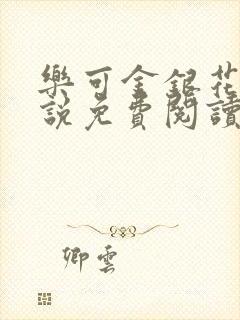 樂可金銀花
說免費閱讀
卿雲